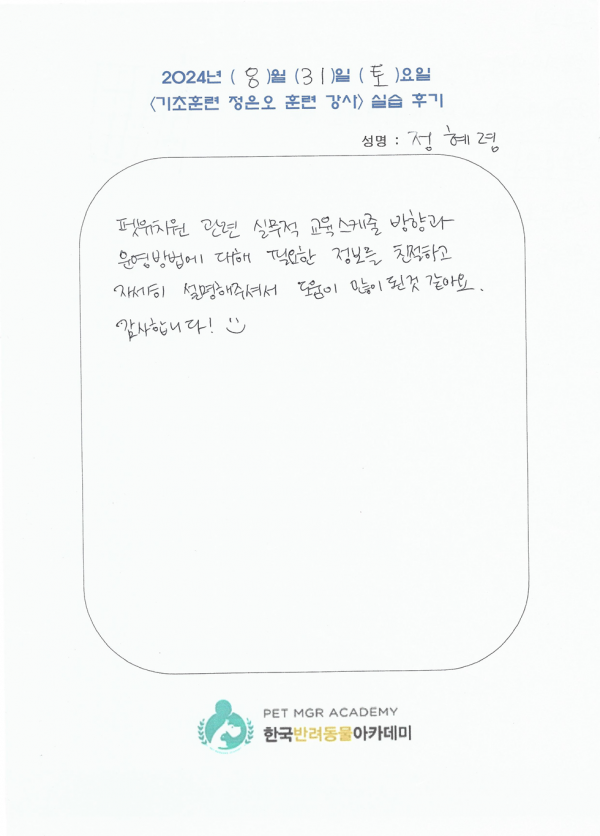 2024년 ( 8 )월 (31)일 ( 토 )요일
<기초훈련 정은오 훈련 강사> 실습 후기
성명 : 정 혜 령
펫유치원 관련 실무적 교육스케줄 방향과
운영방법에 대해 필요한 정보를 친절하고
자세히 설명해주셔서 도움이 많이 된것 같아요.
감사합니다! :)
PET MGR ACADEMY
한국반려동물아카데미